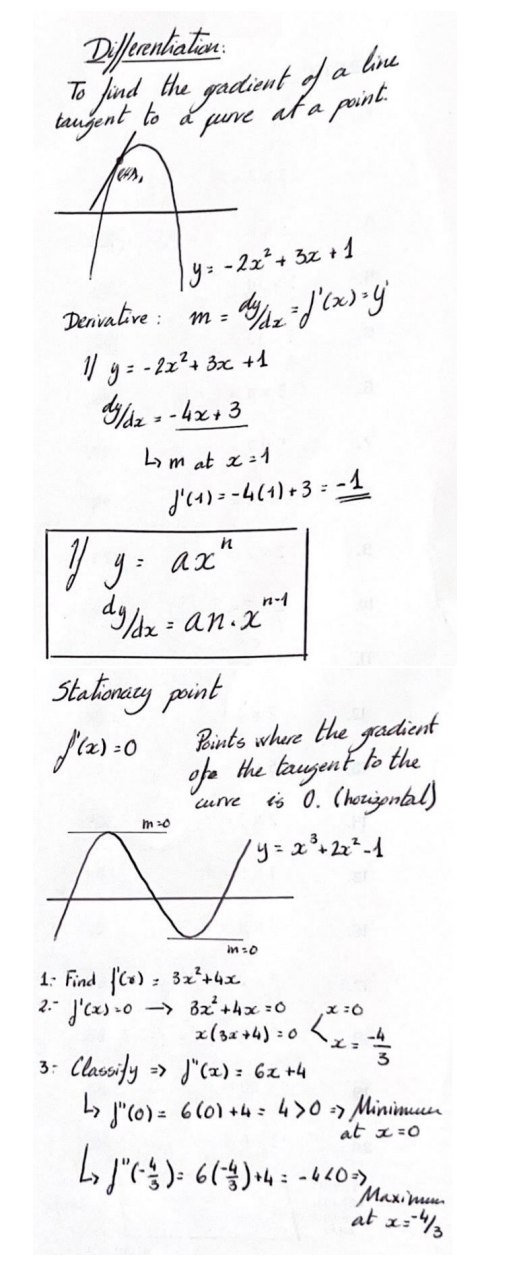 Differentiation:
To find the gradient of a line
tangent to a curve at a point.
y = -2x² + 3x + 1
Derivative : m = dy/dx = f'(x) = y'
If y = -2x² + 3x + 1
dy/dx = -4x + 3
↳ m at x = 1
f'(1) = -4(1) + 3 = -1
If y = axⁿ
dy/dx = an · xⁿ⁻¹
Stationary point
f'(x) = 0 Points where the gradient
of the tangent to the
curve is 0. (horizontal)
m=0
y = x³ + 2x² - 1
m=0
1.- Find f'(x) = 3x² + 4x
2.- f'(x) = 0 → 3x² + 4x = 0 x = 0
x(3x + 4) = 0 < x = -4/3
3.- Classify => f''(x) = 6x + 4
↳ f''(0) = 6(0) + 4 = 4 > 0 => Minimum
at x = 0
↳ f''(-4/3) = 6(-4/3) + 4 = -4 < 0 =>
Maximum
at x = -4/3